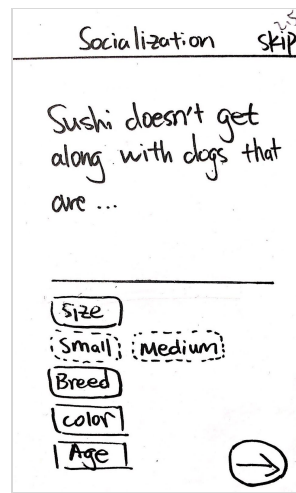 2.5
Socialization skip
Sushi doesn't get
along with dogs that
are ...
size
Small Medium
Breed
color
Age